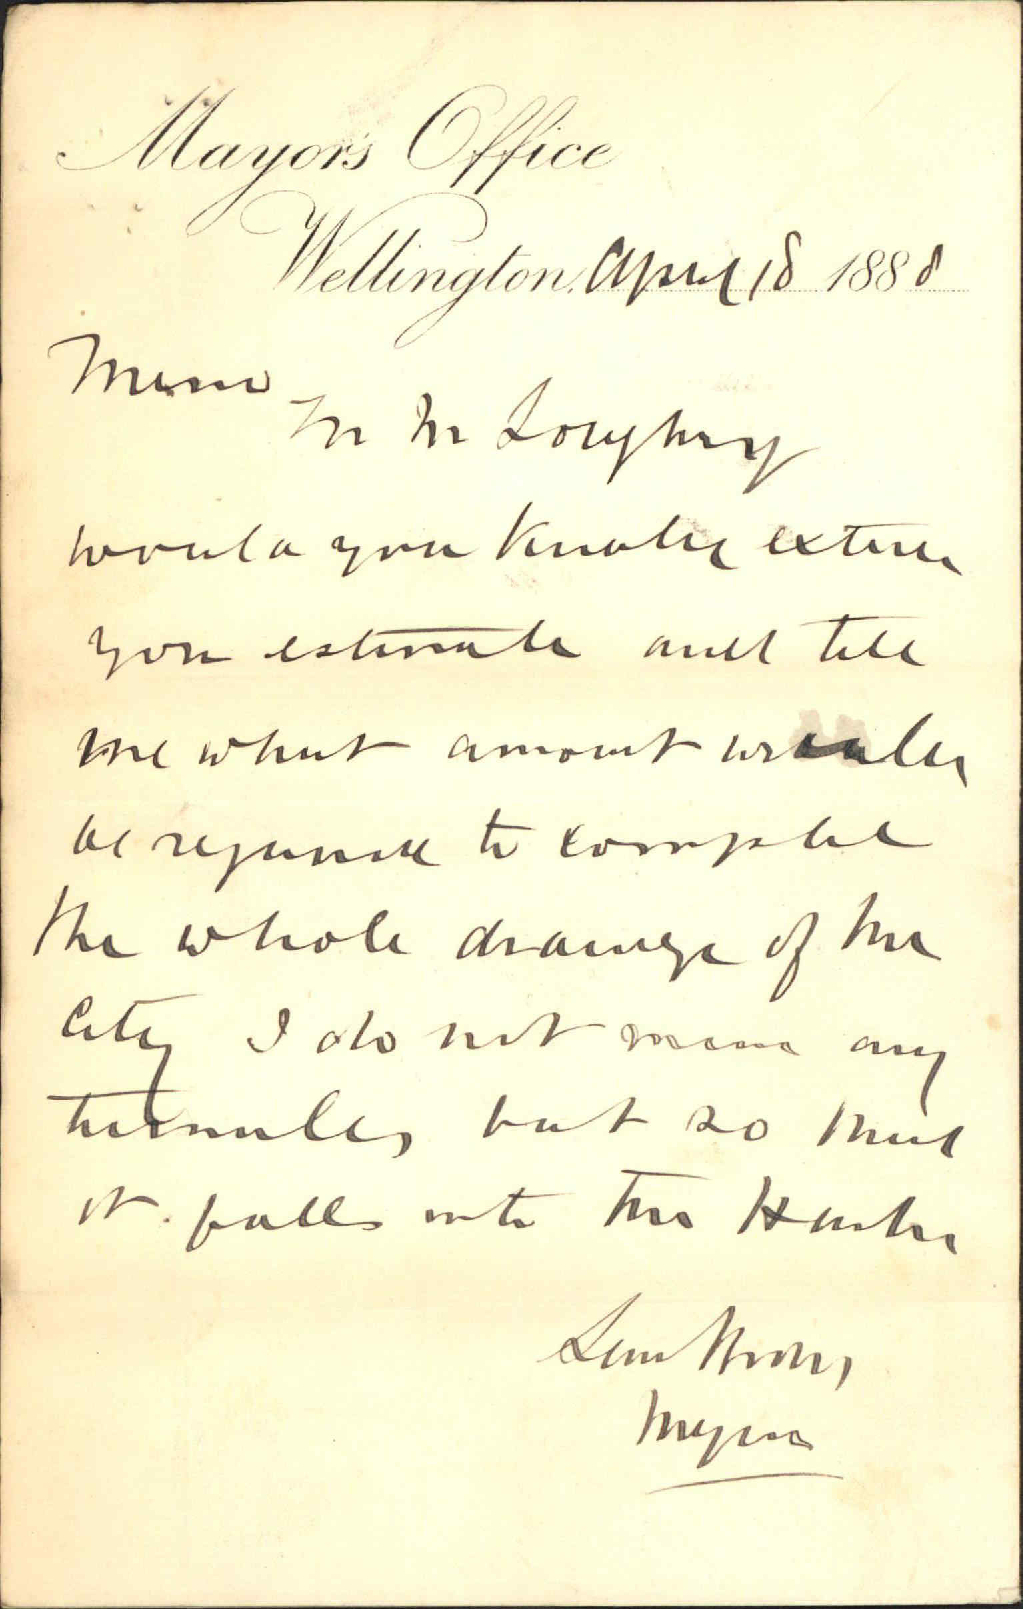 Mayor's Office
Wellington, April 18 1888
Memo
Mr McLoughrey
would you kindly extend
your estimate and tell
me what amount would
be required to complete
the whole drainage of the
City I do not mean any
tunnels, but so that
it falls into the Harbor
Sam Brown,
Mayor